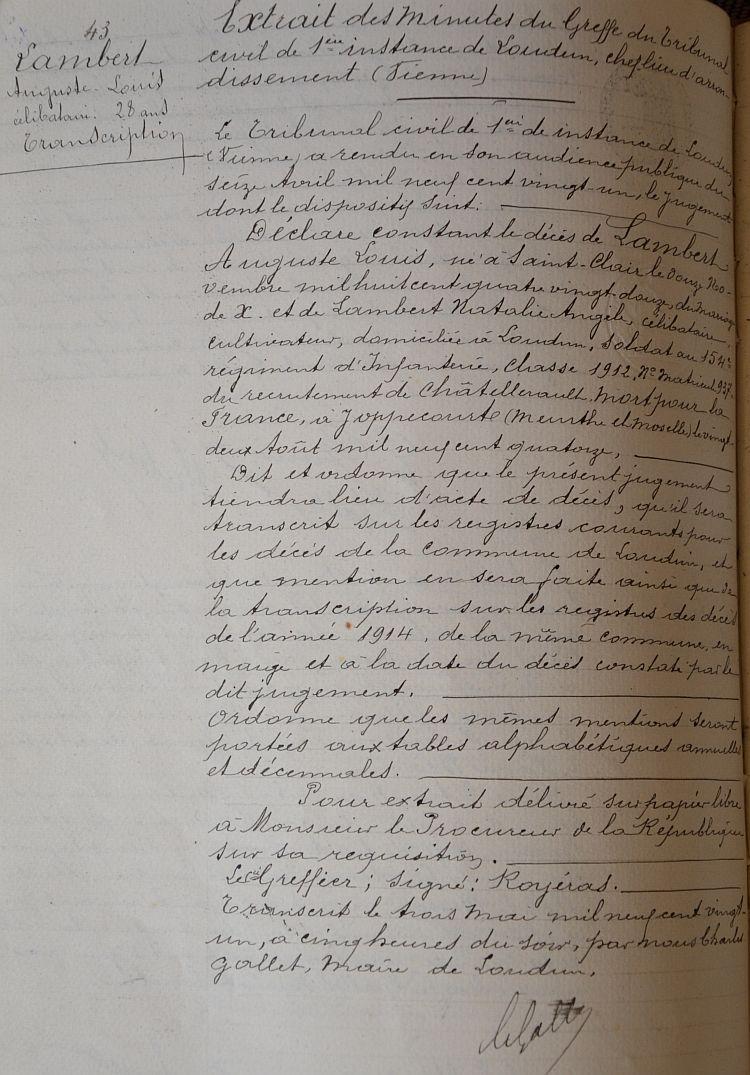 43
Lambert
Auguste-Louis
célibataire. 28 ans
Transcription
Extrait des Minutes du Greffe du Tribunal
civil de 1ère instance de Loudun, chef lieu d'arron-
dissement (Vienne)
Le Tribunal civil de 1ère de instance de Loudun,
(Vienne) a rendu en son audience publique du
seize Avril mil neuf cent vingt-un, le jugement
dont le dispositif suit:
Déclare constant le décès de Lambert
Auguste Louis, né à Saint-Clair le douze No-
vembre mil huit cent quatre vingt-douze, du mariage
de X. et de Lambert Natalie Angèle, célibataire,
cultivateur, domiciliée à Loudun, soldat au 154e
régiment d'Infanterie, Classe 1912, No Matricul 937.
du recrutement de Châtellerault, Mort pour la
France, à Joppécourt (Meurthe et Moselle) le vingt-
deux Août mil neuf cent quatorze,
Dit et ordonne que le présent jugement
tiendra lieu d'acte de décès, qu'il sera
transcrit sur les registres courants pour
les décès de la commune de Loudun, et
que mention en sera faite ainsi que de
la transcription sur les registres des décès
de l'année 1914, de la même commune, en
marge et à la date du décès constaté par le
dit jugement.
Ordonne que les mêmes mentions seront
portées aux tables alphabétiques annuelles
et décennales.
Pour extrait délivré sur papier libre
à Monsieur le Procureur de la République
sur sa requisition.
Le Greffier; signé: Royéras.
Transcrit le trois Mai mil neuf cent vingt-
un, à cinq heures du soir, par nous Charles
Gallet, Maire de Loudun.